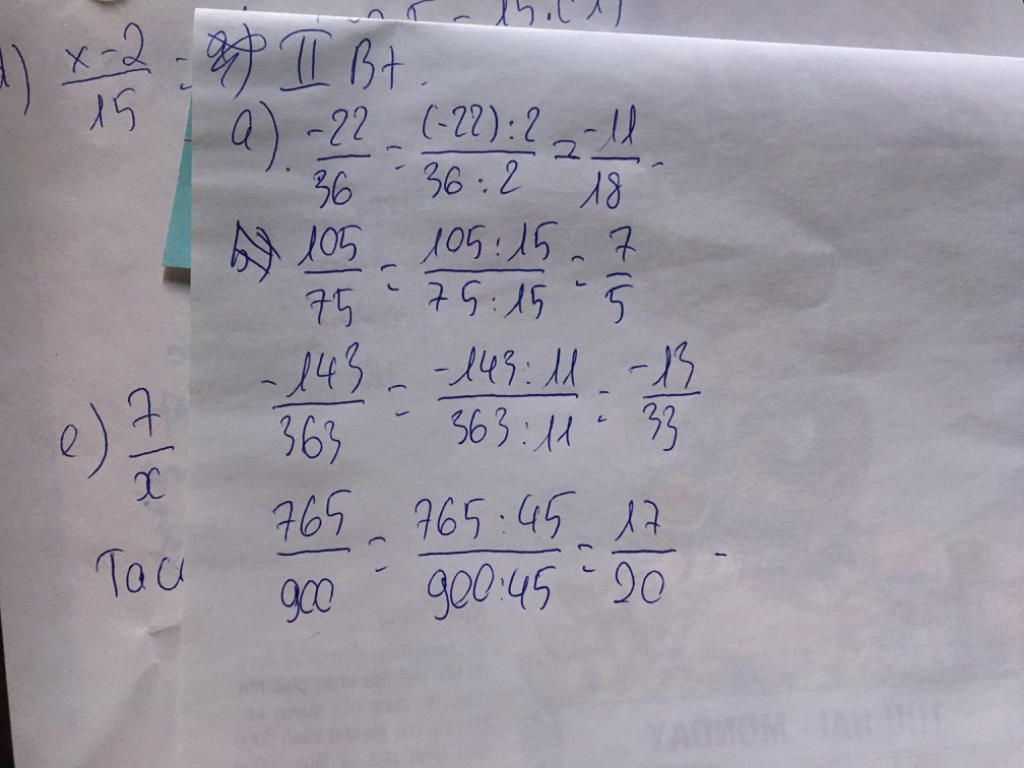 d) x-2/15 =
II Bt.
a). -22/36 = (-22):2/36:2 = -11/18.
b) 105/75 = 105:15/75:15 = 7/5
-143/363 = -143:11/363:11 = -13/33
765/900 = 765:45/900:45 = 17/20.
e) 7/x
Ta c
THỨ HAI - MONDAY